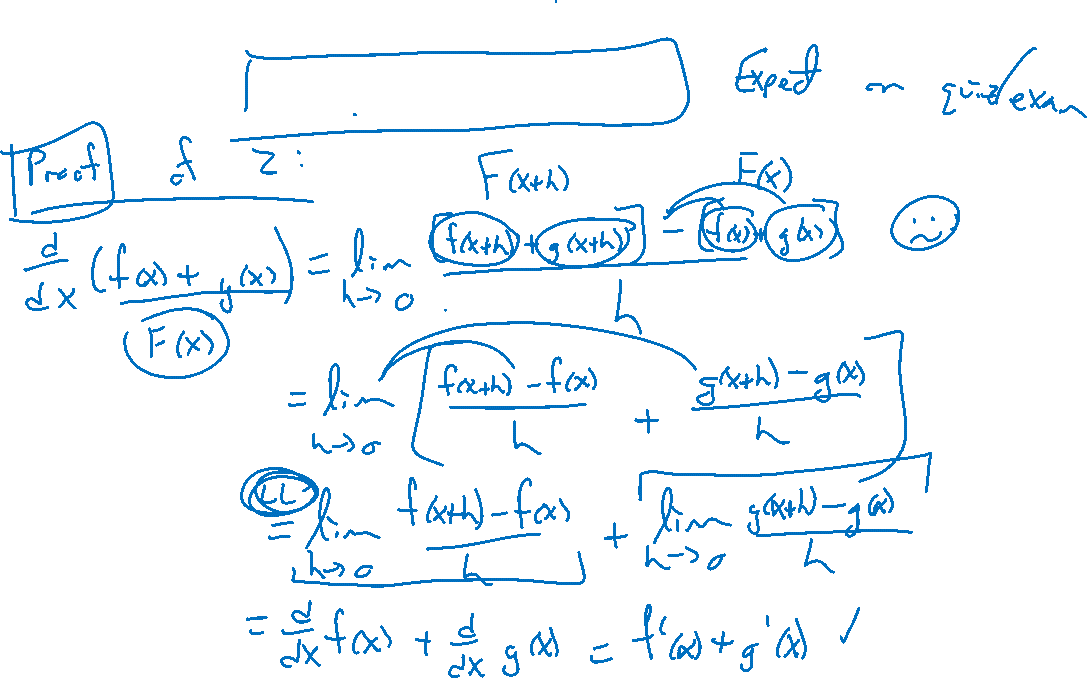 Expect on quiz/exam
Proof of 2:
F(x+h) F(x)
d/dx (f(x) + g(x)) = lim h→0 [f(x+h) + g(x+h)] - [f(x) + g(x)] / h
F(x)
= lim h→0 [f(x+h) - f(x) / h + g(x+h) - g(x) / h]
LL
= lim h→0 f(x+h) - f(x) / h + lim h→0 g(x+h) - g(x) / h
= d/dx f(x) + d/dx g(x) = f'(x) + g'(x) ✓